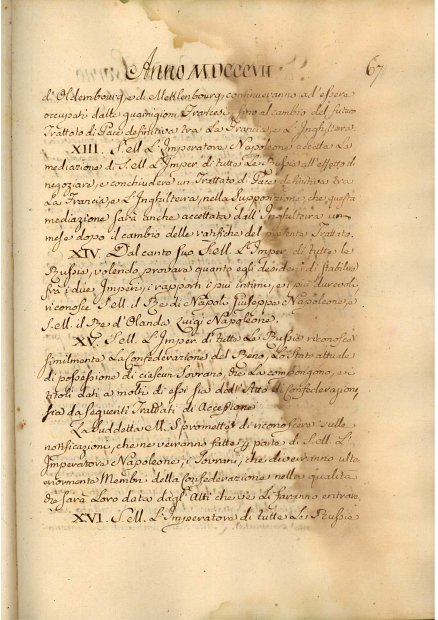 Anno MDCCCVII 67
d'Oldembourg, e di Meklenbourg, continueranno ad essere
occupati dalle guarnigioni Francesi, fino al cambio del futuro
Trattato di Pace definitiva tra La Francia, e L'Inghilterra.
XIII. S. M. L'Imperatore Napoleone accetta La
mediazione di S. M. L'Imper. di tutte Le Russie all'effetto di
negoziare, e conchiudere un Trattato di Pace definitiva tra
La Francia, e L'Inghilterra, nella Supposizione, che questa
mediazione sarà anche accettata dall'Inghilterra un
mese dopo il cambio delle ratifiche del presente Trattato.
XIV. Dal canto suo S. M. L'Imper. di tutte le
Russie, volendo provare quanto egli desideri di stabilire
fra i due Imperi, i rapporti i più intimi, e i più durevoli,
riconosce S. M. il Re di Napoli Giuseppe Napoleone, e
S. M. il Re d'Olanda Luigi Napoleone.
XV. S. M. L'Imper. di tutte Le Russie riconosce
similmente La Confederazione del Reno, Lo Stato attuale
di possessione di ciascun Sovrano, che La compongono, e i
titoli dati a molti di essi sia dall'Atto di Confederazione
sia da seguenti Trattati di Accessione
La suddetta M. S. promette di riconoscere sulle
notificazioni, che ne verranno fatte p parte di S. M. L'
Imperatore Napoleone, i Sovrani, che diverranno ulte
riormente Membri della Confederazione nella qualità
che sarà Loro data dagli Atti che ve di faranno entrare.
XVI. S. M. L'Imperatore di tutte Le Russie